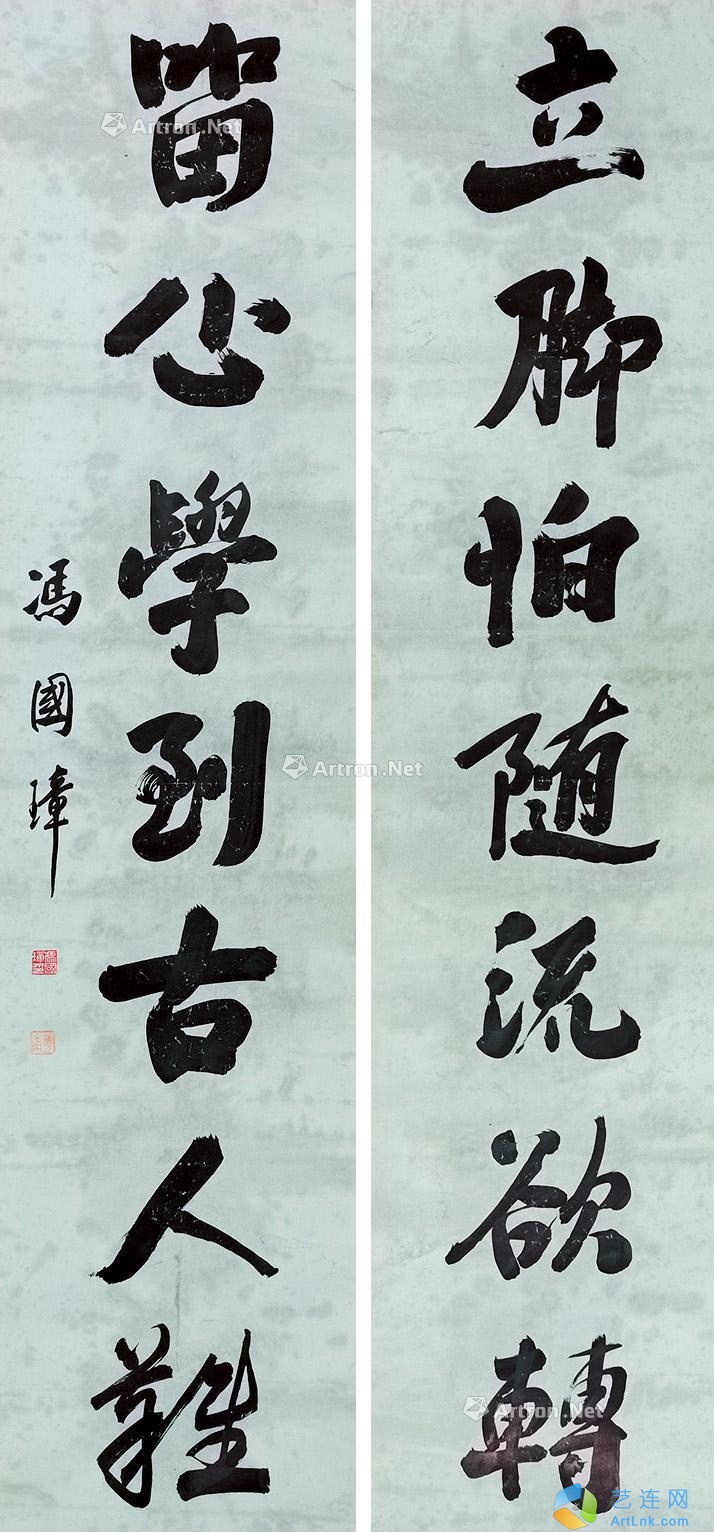 立脚怕随流欲轉
留心學到古人難
馮國璋
Artron.Net
Artron.Net
Artron.Net
艺连网
ArtLnk.com